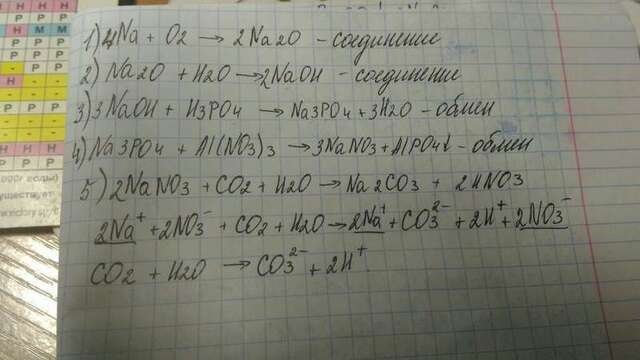 1) 4Na + O2 → 2Na2O - соединение
2) Na2O + H2O → 2NaOH - соединение
3) 3NaOH + H3PO4 → Na3PO4 + 3H2O - обмен
4) Na3PO4 + Al(NO3)3 → 3NaNO3 + AlPO4↓ - обмен
5) 2NaNO3 + CO2 + H2O → Na2CO3 + 2HNO3
2Na⁺ + 2NO3⁻ + CO2 + H2O → 2Na⁺ + CO3²⁻ + 2H⁺ + 2NO3⁻
CO2 + H2O → CO3²⁻ + 2H⁺